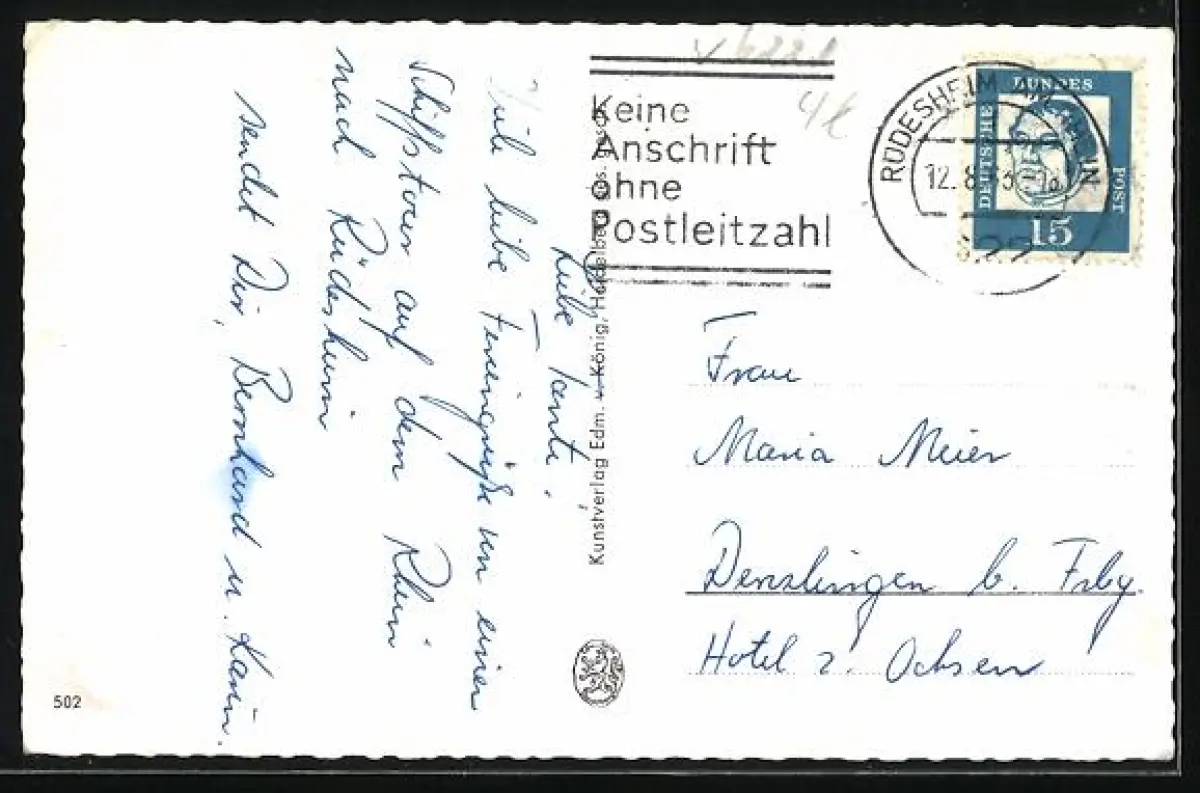 Liebe Tante!
Viele liebe Feriengrüße von einer
Schiffstour auf dem Rhein
nach Rüdesheim
sendet Dir, Bernhard u. Karin.
Kunstverlag Edm. v. König, Heidelberg
502
Keine
Anschrift
ohne
Postleitzahl
RÜDESHEIM AM RHEIN
12.8.63
622
DEUTSCHE
BUNDES
POST
15
Frau
Maria Meier
Denzlingen b. Frbg.
Hotel z. Ochsen